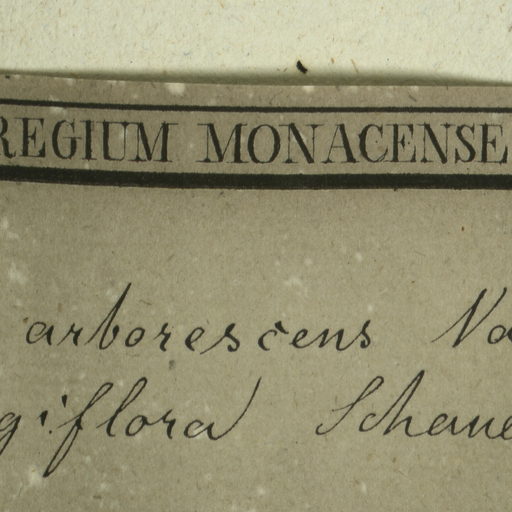 REGIUM MONACENSE
arborescens Na
giflora Schaue